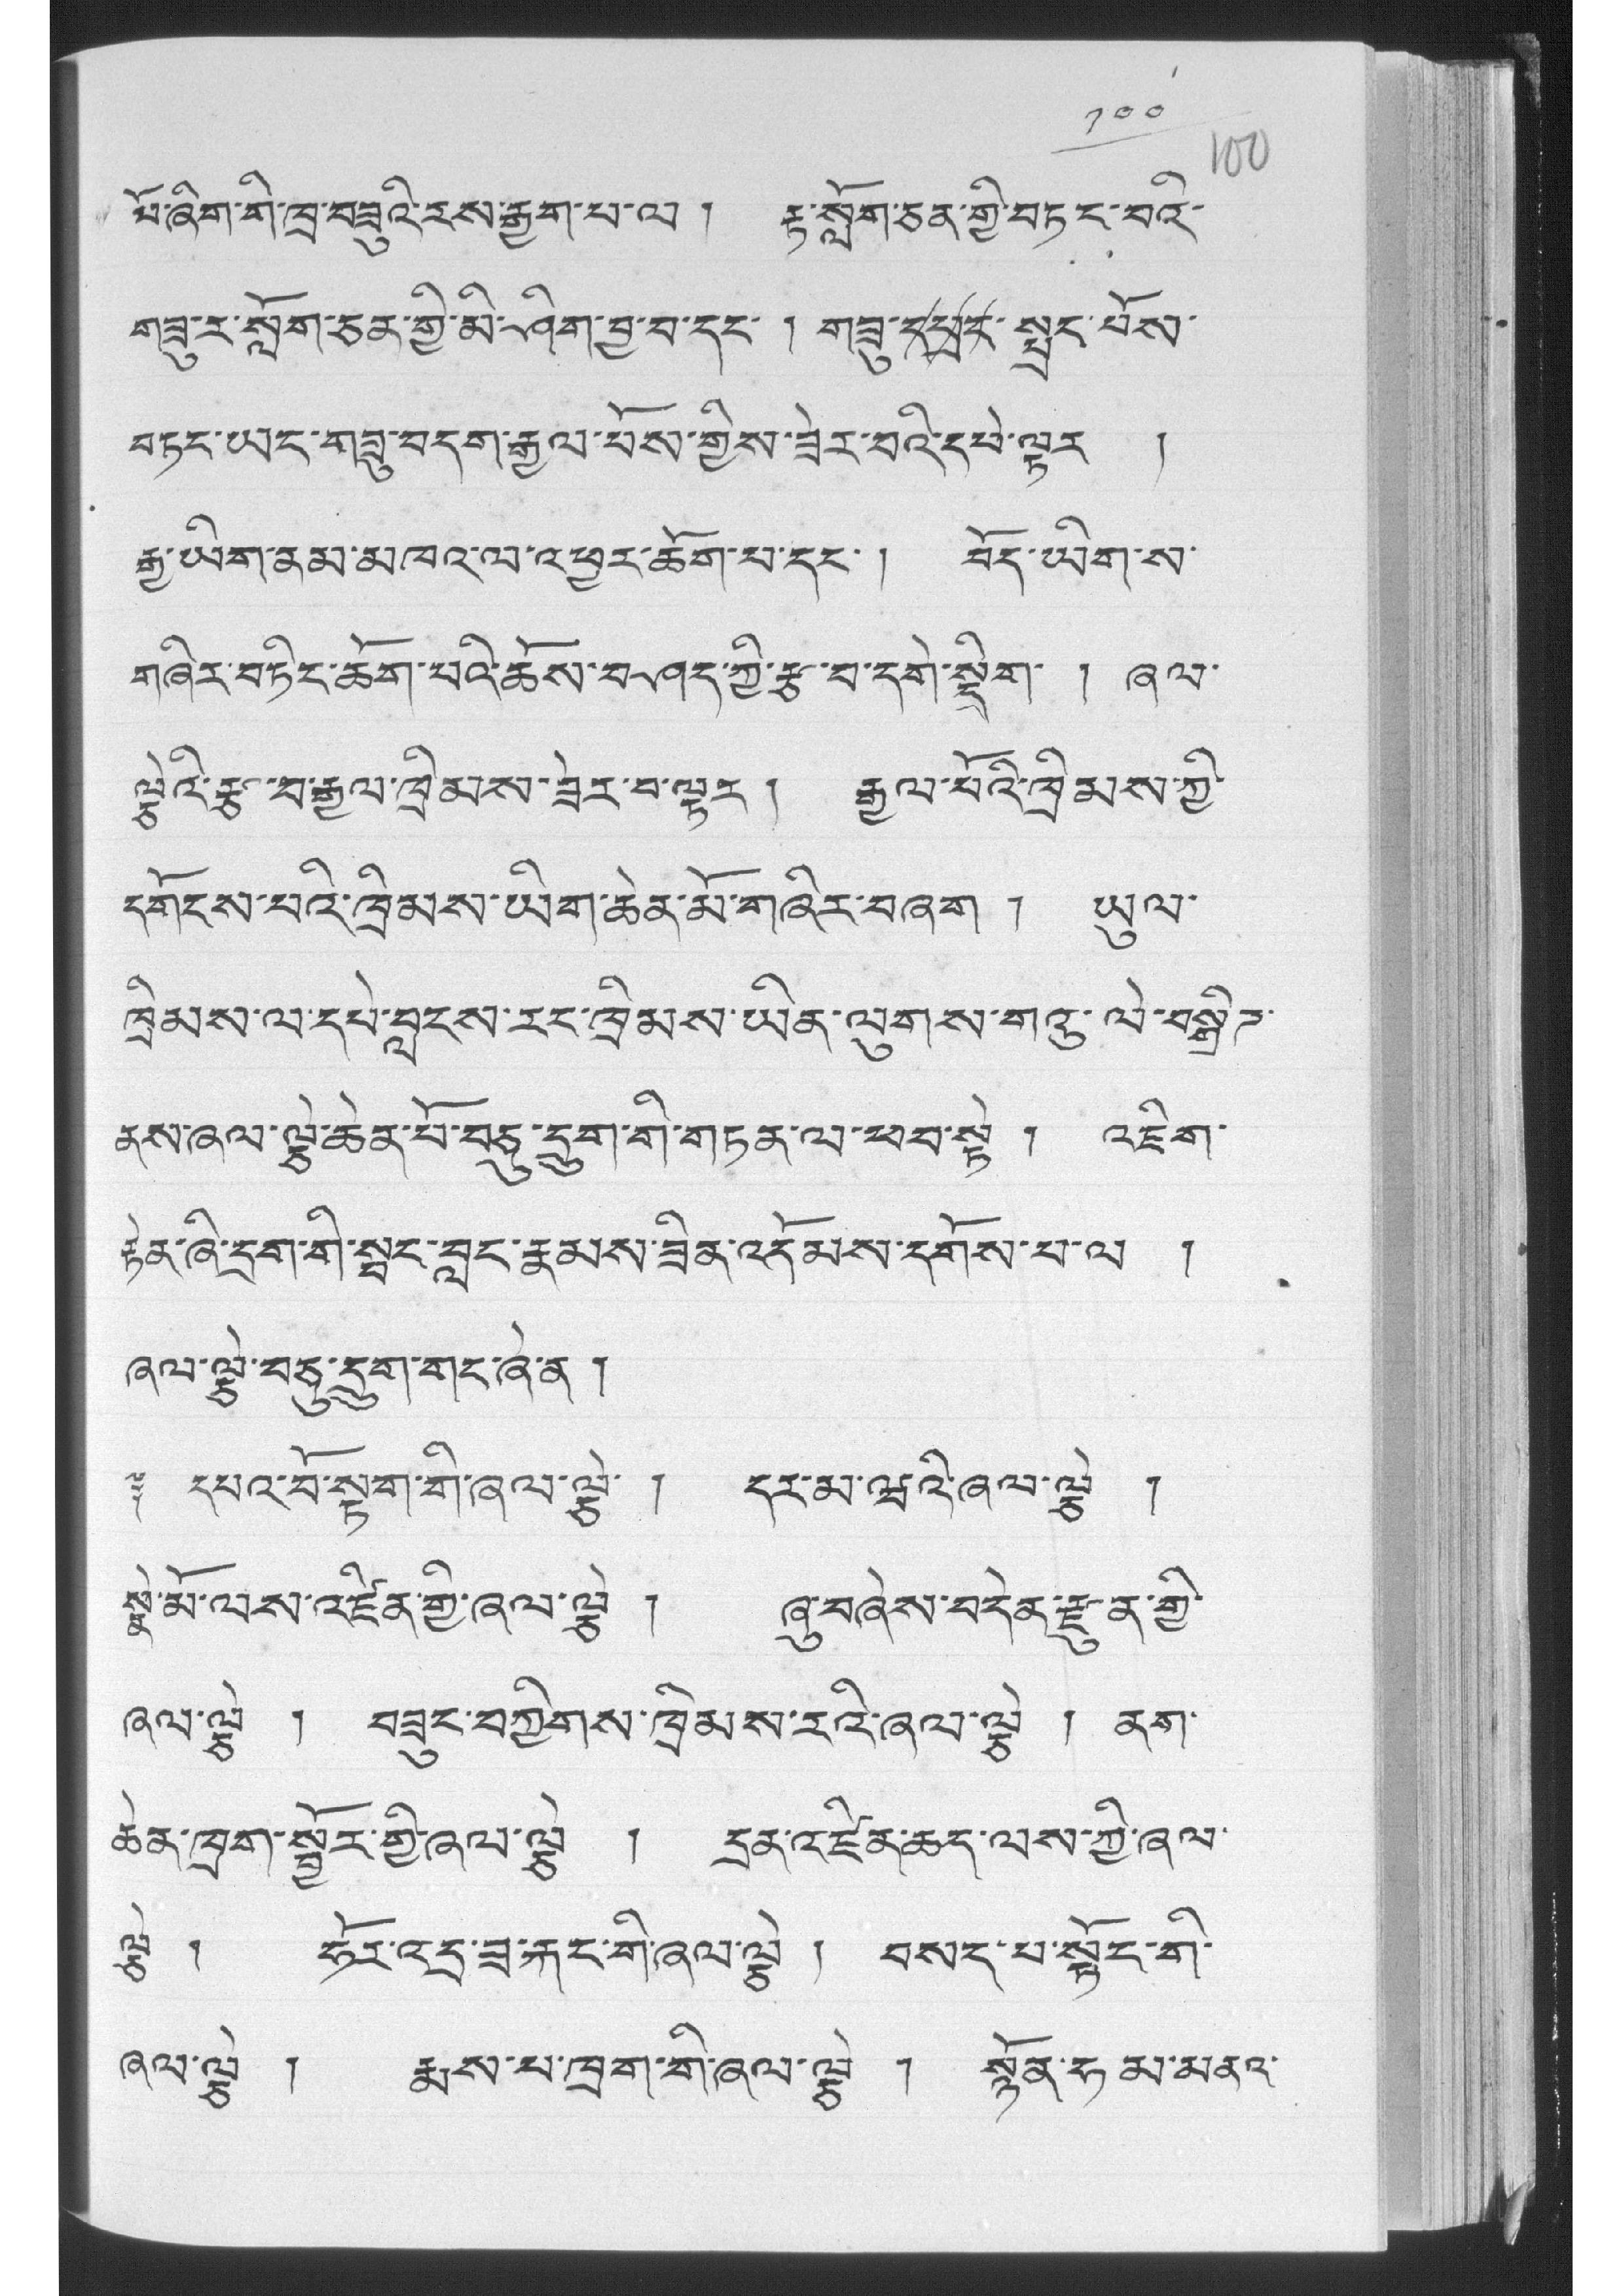 ༡༠༠
100
པོ་ཞིག་གི་ཁྲ་བཟུའི་རས་རྒྱག་པ་ལ། རྟ་སློག་ཅན་གྱི་བཏང་བའི་
གཟུ་ར་སློག་ཅན་གྱི་མི་ཤིག་བྱ་བ་དང་། གཟུ་ སྤྲང་པོས་
བཏང་ཡང་གཟུ་བདག་རྒྱལ་པོས་གྱིས་ཟེར་བའི་དཔེ་ལྟར །
རྒྱ་ཡིག་ནམ་མཁའ་ལ་འཕྱར་ཆོག་པ་དང་། བོད་ཡིག་ས་
གཞིར་བཏིང་ཆོག་པའི་ཆོས་བཤད་ཀྱི་རྩ་བ་དགེ་སྡིག །ཞལ་
ལྕེའི་རྩ་བ་རྒྱལ་ཁྲིམས་ཟེར་བ་ལྟར། རྒྱལ་པོའི་ཁྲིམས་ཀྱི་
དགོངས་པའི་ཁྲིམས་ཡིག་ཆེན་མོ་གཞིར་བཞག ། ཡུལ་
ཁྲིམས་ལ་དཔེ་བླངས་རང་ཁྲིམས་ཡིན་ལུགས་གཏུ་ལེ་བསྒྲིར་
ནས་ཞལ་ལྕེ་ཆེན་པོ་བཅུ་དྲུག་གི་གཏན་ལ་ཕབ་སྟེ། འཇིག་
རྟེན་ཞི་དྲག་གི་སྤང་བླང་རྣམས་ཟིན་འདོམས་དགོས་པ་ལ །
ཞལ་ལྕེ་བཅུ་དྲུག་གང་ཞེ་ན།
༈ དཔའ་བོ་སྟག་གི་ཞལ་ལྕེ། དར་མ་ཝའི་ཞལ་ལྕེ །
སྣེ་མོ་ལས་འཛིན་གྱི་ཞལ་ལྕེ། ཞུ་བཞེས་བདེན་རྫུན་གྱི་
ཞལ་ལྕེ། བཟུང་བཀྱིགས་ཁྲིམས་རའི་ཞལ་ལྕེ། ནག་
ཆེན་ཁྲག་སྦྱོར་གྱི་ཞལ་ལྕེ། དྲན་འཛིན་ཆད་ལས་ཀྱི་ཞལ་
ལྕེ། ཧོར་འདྲ་ཟ་རྐང་གི་ཞལ་ལྕེ། བསད་པ་སྟོང་གི་
ཞལ་ལྕེ། རྨས་པ་ཁྲག་གི་ཞལ་ལྕེ། སྙོན་ཧམ་མནའ་